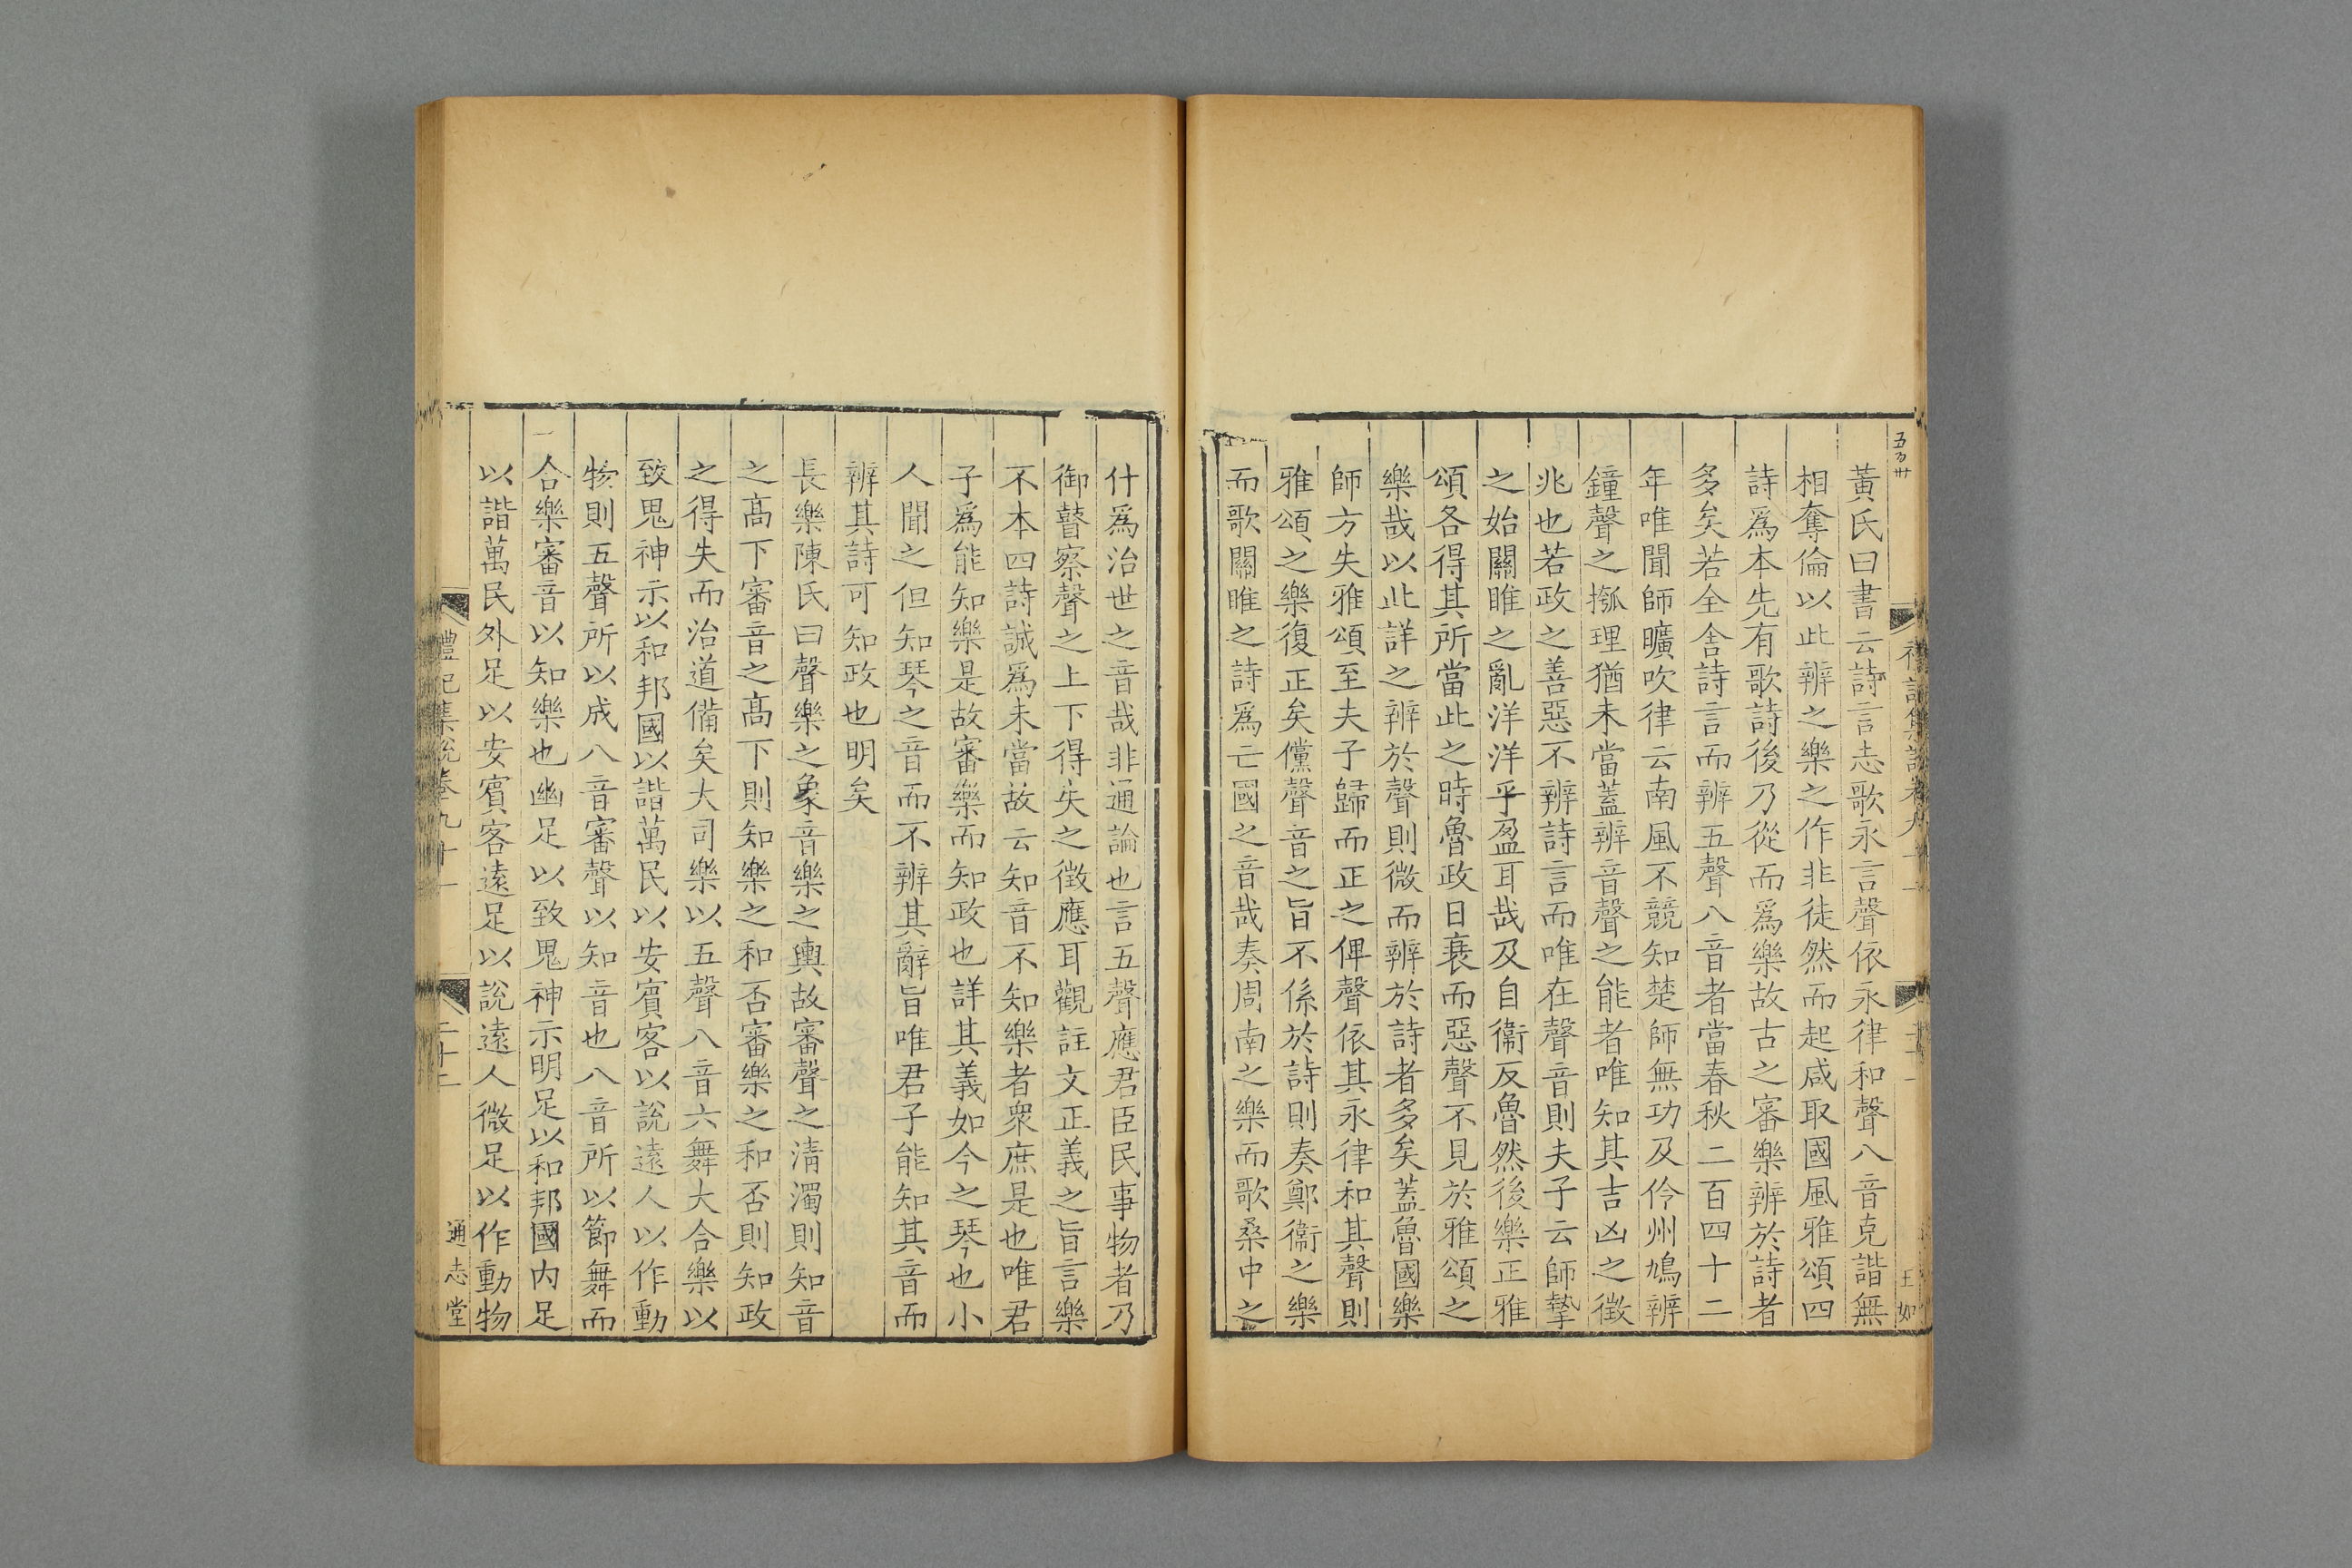 黃氏曰書云詩言志歌永言聲依永律和聲八音克諧無
相奪倫以此辨之樂之作非徒然而起咸取國風雅頌四
詩爲本先有歌詩後乃從而爲樂故古之審樂辨於詩者
多矣若全舍詩言而辨五聲八音者當春秋二百四十二
年唯聞師曠吹律云南風不競知楚師無功及伶州鳩辨
鐘聲之摦理猶未當蓋辨音聲之能者唯知其吉凶之徵
兆也若政之善惡不辨詩言而唯在聲音則夫子云師摯
之始關雎之亂洋洋乎盈耳哉及自衞反魯然後樂正雅
頌各得其所當此之時魯政日衰而惡聲不見於雅頌之
樂哉以此詳之辨於聲則微而辨於詩者多矣蓋魯國樂
師方失雅頌至夫子歸而正之俾聲依其永律和其聲則
雅頌之樂復正矣儻聲音之旨不係於詩則奏鄭衞之樂
而歌關雎之詩爲亡國之音哉奏周南之樂而歌桑中之
禮記集說卷九十一
王如
什爲治世之音哉非通論也言五聲應君臣民事物者乃
御瞽察聲之上下得失之徵應耳觀註文正義之旨言樂
不本四詩誠爲未當故云知音不知樂者衆庶是也唯君
子爲能知樂是故審樂而知政也詳其義如今之琴也小
人聞之但知琴之音而不辨其辭旨唯君子能知其音而
辨其詩可知政也明矣
長樂陳氏曰聲樂之象音樂之輿故審聲之淸濁則知音
之髙下審音之髙下則知樂之和否審樂之和否則知政
之得失而治道備矣大司樂以五聲八音六舞大合樂以
致鬼神示以和邦國以諧萬民以安賓客以說遠人以作動
物則五聲所以成八音審聲以知音也八音所以節舞而
合樂審音以知樂也幽足以致鬼神示明足以和邦國内足
以諧萬民外足以安賓客遠足以說遠人微足以作動物
禮記集說卷九十一
二十二
通志堂